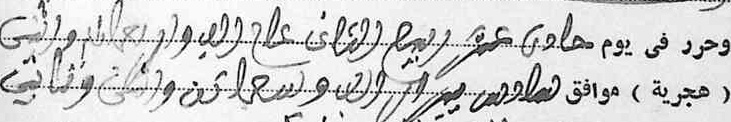 وحرر فى يوم حادى عشر ربيع الثانى عام الف واربعمائة واثنى
( هجرية ) موافق سادس فبراير الف وتسعمائة واثنى وثمانين